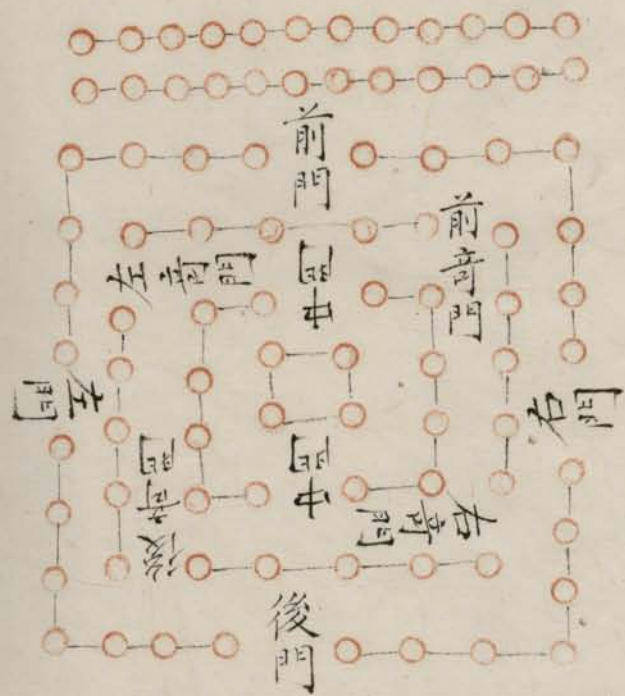 前門
前奇門
左奇門
中門
左門
右門
後奇門
中門
右奇門
後門